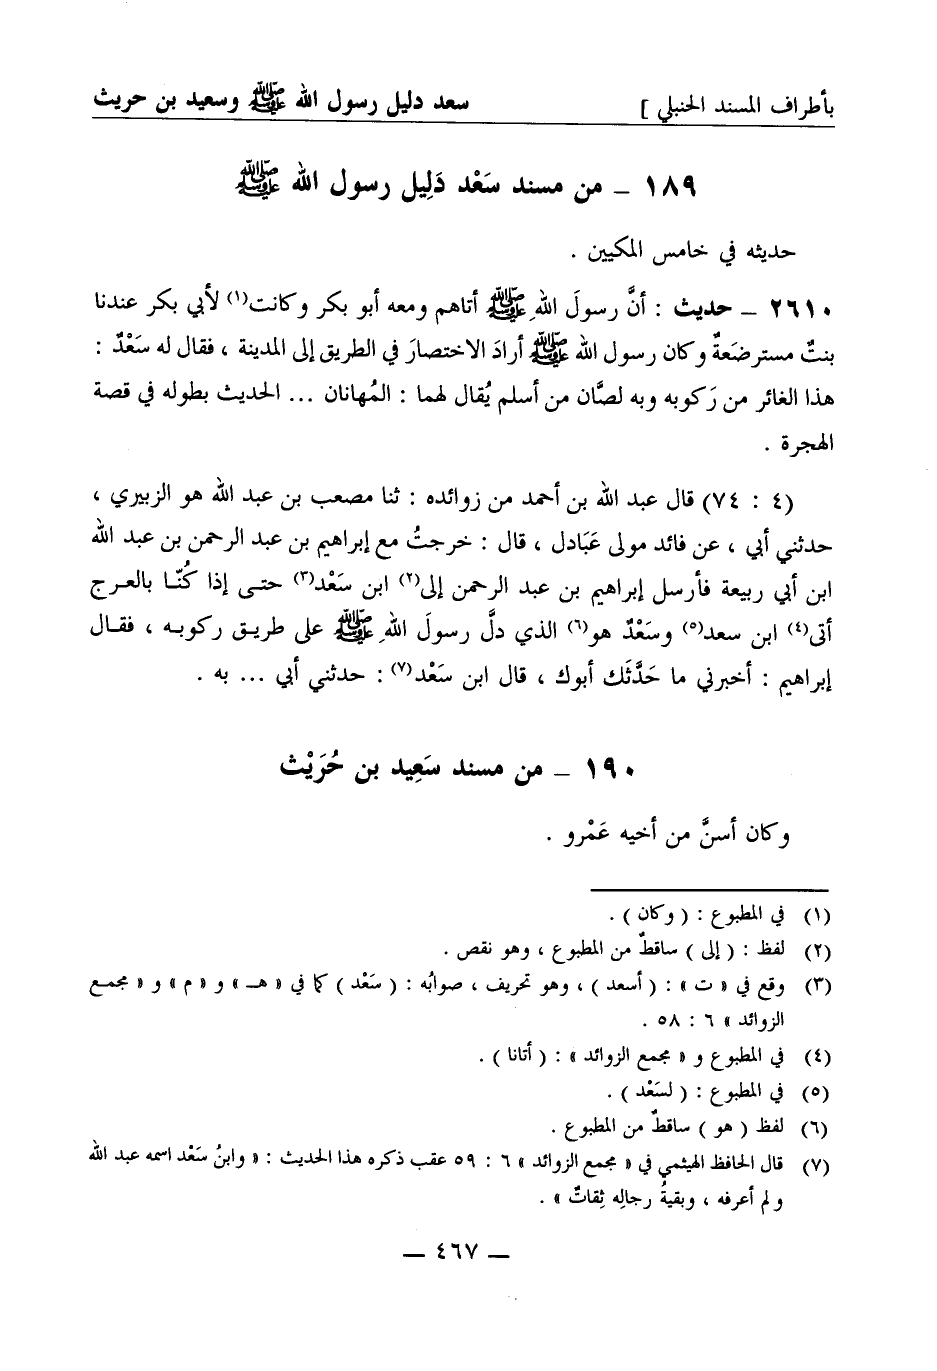 بأطراف المسند الحنبلي ] سعد دليل رسول الله ﷺ وسعيد بن حريث
١٨٩ ـ من مسند سَعْد دَلِيل رسول الله ﷺ
حديثه في خامس المكيين .
٢٦١٠ ـ حديث : أنَّ رسولَ اللهِ ﷺ أتاهم ومعه أبو بكر وكانت(١) لأبي بكر عندنا
بنتٌ مسترضَعةٌ وكان رسول الله ﷺ أرادَ الاختصارَ في الطريق إلى المدينة ، فقال له سَعْدٌ :
هذا الغائر من رَكوبه وبه لصَّان من أسلم يُقال لهما : المُهانان ... الحديث بطوله في قصة
الهجرة .
(٤ : ٧٤) قال عبد الله بن أحمد من زوائده : ثنا مصعب بن عبد الله هو الزبيري ،
حدثني أبي ، عن فائد مولى عَبَادل ، قال : خرجتُ مع إبراهيم بن عبد الرحمن بن عبد الله
ابن أبي ربيعة فأرسل إبراهيم بن عبد الرحمن إلى(٢) ابن سَعْد(٣) حتـى إذا كُنّـا بالعـرج
أتى(٤) ابن سعد(٥) وسَعْدٌ هو(٦) الذي دلَّ رسولَ اللهِ ﷺ على طريـق ركوبـه ، فقـال
إبراهيم : أخبرني ما حَدَّثَك أبوك ، قال ابن سَعْد(٧) : حدثني أبي ... به .
١٩٠ ـ من مسند سَعِيد بن حُرَيْث
وكان أسنَّ من أخيه عَمْرو .
(١) في المطبوع : ( وكان ) .
(٢) لفظ : ( إلى ) ساقطٌ من المطبوع ، وهو نقص .
(٣) وقع في « ت » : ( أسعد ) ، وهو تحريف ، صوابُه : ( سَعْد ) كما في « هـ » و « م » و « مجمـع
الزوائد » ٦ : ٥٨ .
(٤) في المطبوع و « مجمع الزوائد » : ( أتانا ) .
(٥) في المطبوع : ( لسَعْد ) .
(٦) لفظ ( هو ) ساقطٌ من المطبوع .
(٧) قال الحافظ الهيثمي في « مجمع الزوائد » ٦ : ٥٩ عقب ذكره هذا الحديث : « وابنُ سَعْد اسمه عبد الله
ولم أعرفه ، وبقيةُ رجالِه ثِقاتٌ » .
ـ ٤٦٧ ـ